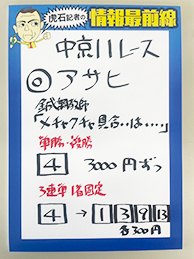 虎石記者の
情報最前線
中京11レース
◎アサヒ
「メチャクチャ具合いは‥‥」
単勝・複勝
4 3000円ずつ
3連単1着固定
4→1 3 9 13
各300円